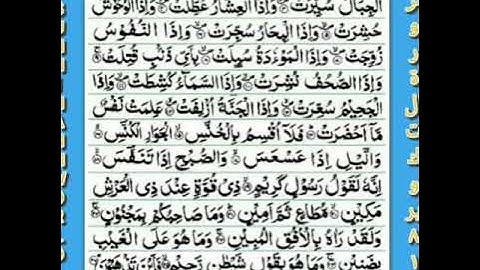 الْجِبَالُ سُيِّرَتْ ۝ وَاِذَا الْعِشَارُ عُطِّلَتْ ۝ وَاِذَا الْوُحُوْشُ
حُشِرَتْ ۝ وَاِذَا الْبِحَارُ سُجِّرَتْ ۝ وَاِذَا النُّفُوْسُ
زُوِّجَتْ ۝ وَاِذَا الْمَوْءٗدَةُ سُىِٕلَتْ ۝ بِاَیِّ ذَنْۢبٍ قُتِلَتْ ۝
وَاِذَا الصُّحُفُ نُشِرَتْ ۝ وَاِذَا السَّمَآءُ كُشِطَتْ ۝ وَاِذَا
الْجَحِیْمُ سُعِّرَتْ ۝ وَاِذَا الْجَنَّةُ اُزْلِفَتْ ۝ عَلِمَتْ نَفْسٌ
مَّاۤ اَحْضَرَتْ ۝ فَلَاۤ اُقْسِمُ بِالْخُنَّسِ ۝ الْجَوَارِ الْكُنَّسِ ۝
وَالَّیْلِ اِذَا عَسْعَسَ ۝ وَالصُّبْحِ اِذَا تَنَفَّسَ ۝
اِنَّهٗ لَقَوْلُ رَسُوْلٍ كَرِیْمٍ ۝ ذِیْ قُوَّةٍ عِنْدَ ذِی الْعَرْشِ
مَكِیْنٍ ۝ مُّطَاعٍ ثَمَّ اَمِیْنٍ ۝ وَمَا صَاحِبُكُمْ بِمَجْنُوْنٍ ۝
وَلَقَدْ رَاٰهُ بِالْاُفُقِ الْمُبِیْنِ ۝ وَمَا هُوَ عَلَی الْغَیْبِ
بِضَنِیْنٍ ۝ وَمَا هُوَ بِقَوْلِ شَیْطٰنٍ رَّجِیْمٍ ۝ فَاَیْنَ تَذْهَبُوْنَ ۝